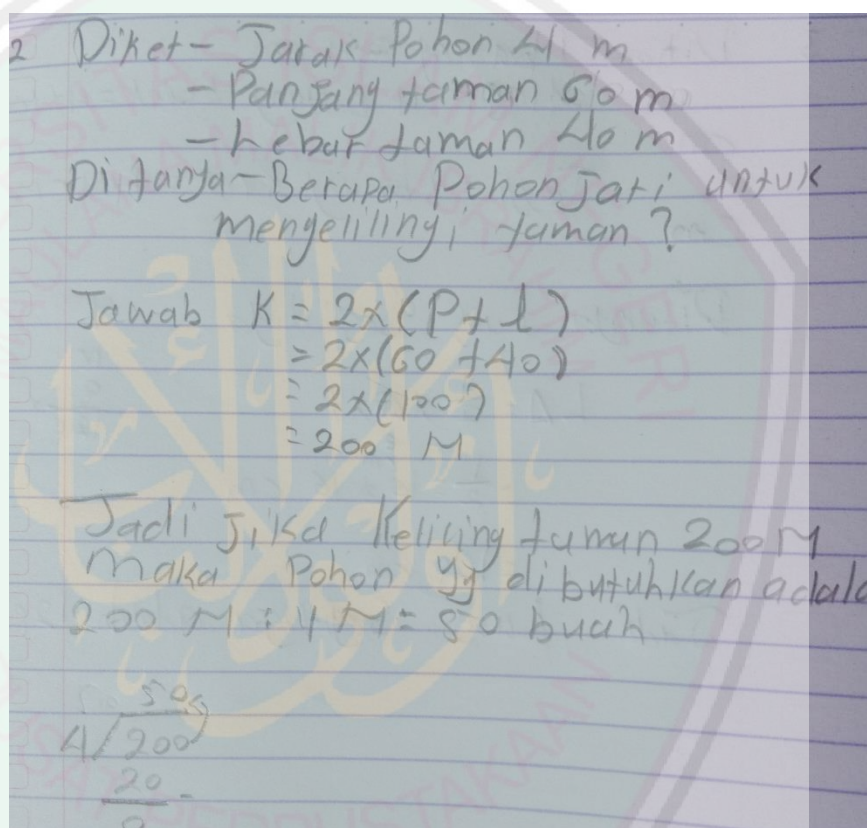 2 Diket - Jarak Pohon 4 m
- Panjang taman 60 m
- Lebar taman 40 m
Ditanya - Berapa Pohon Jati untuk
mengelilingi taman ?
Jawab K = 2x(P+l)
= 2x(60+40)
= 2x(100)
= 200 M
Jadi Jika Keliling taman 200 M
Maka Pohon yg dibutuhkan adala
200 M : 4 M = 50 buah
50
4/200
20 -
0